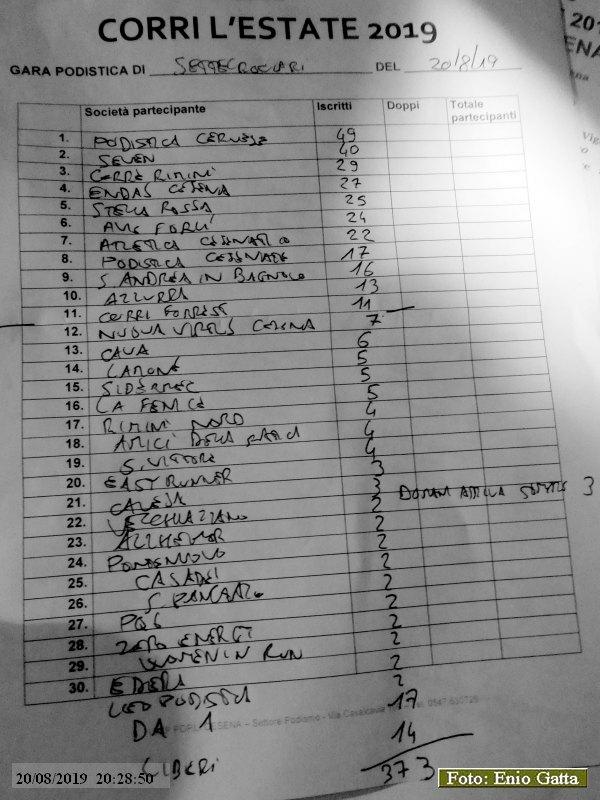 CORRI L'ESTATE 2019
GARA PODISTICA DI SETTECROCIARI DEL 20/8/19
Società partecipante Iscritti Doppi Totale partecipanti
1. PODISTICA CERVESE 49
2. SEVEN 40
3. CORRERIMINI 29
4. ENDAS CESENA 27
5. STELLA ROSSA 25
6. AVIS FORLÍ 24
7. ATLETICA CESENATICO 22
8. PODISTICA CESENATE 17
9. S ANDREA IN BAGNOLO 16
10. AZZURRA 13
11. CORRI FORREST 11
12. NUOVA VIRTUS CESENA 7
13. CAVA 6
14. LAMONE 5
15. SIDERMEC 5
16. LA FENICE 5
17. RIMINI NORD 4
18. AMICI DELLA 4
19. S. VITTORE 4
20. EASY RUNNER 3
21. 3 3
22. VECCHIAZZANO 2
23. ALZHEIMER 2
24. 2
25. CASADEI 2
26. S. PANCRAZIO 2
27. 2
28. ZERO ENERGY 2
29. WOMEN IN RUN 2
30. EDERA 2
LEO PODISTICA 2
DA 1 17
LIBERI 14
373
CESENA – Settore Podismo - Via
0547 630728
201
ENA
20/08/2019 20:28:50
Foto: Enio Gatta